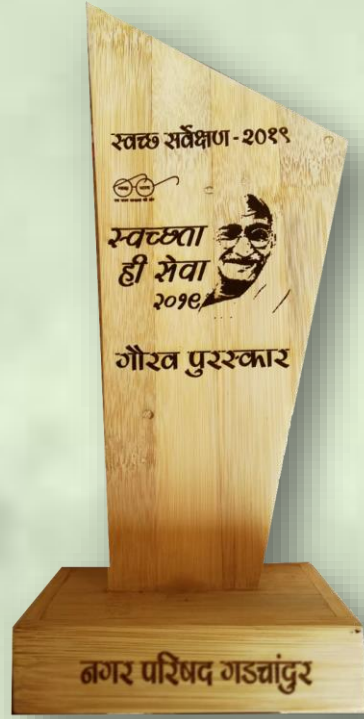 स्वच्छ सर्वेक्षण - २०१९
स्वच्छता
ही सेवा
२०१९
गौरव पुरस्कार
नगर परिषद गडचांदुर